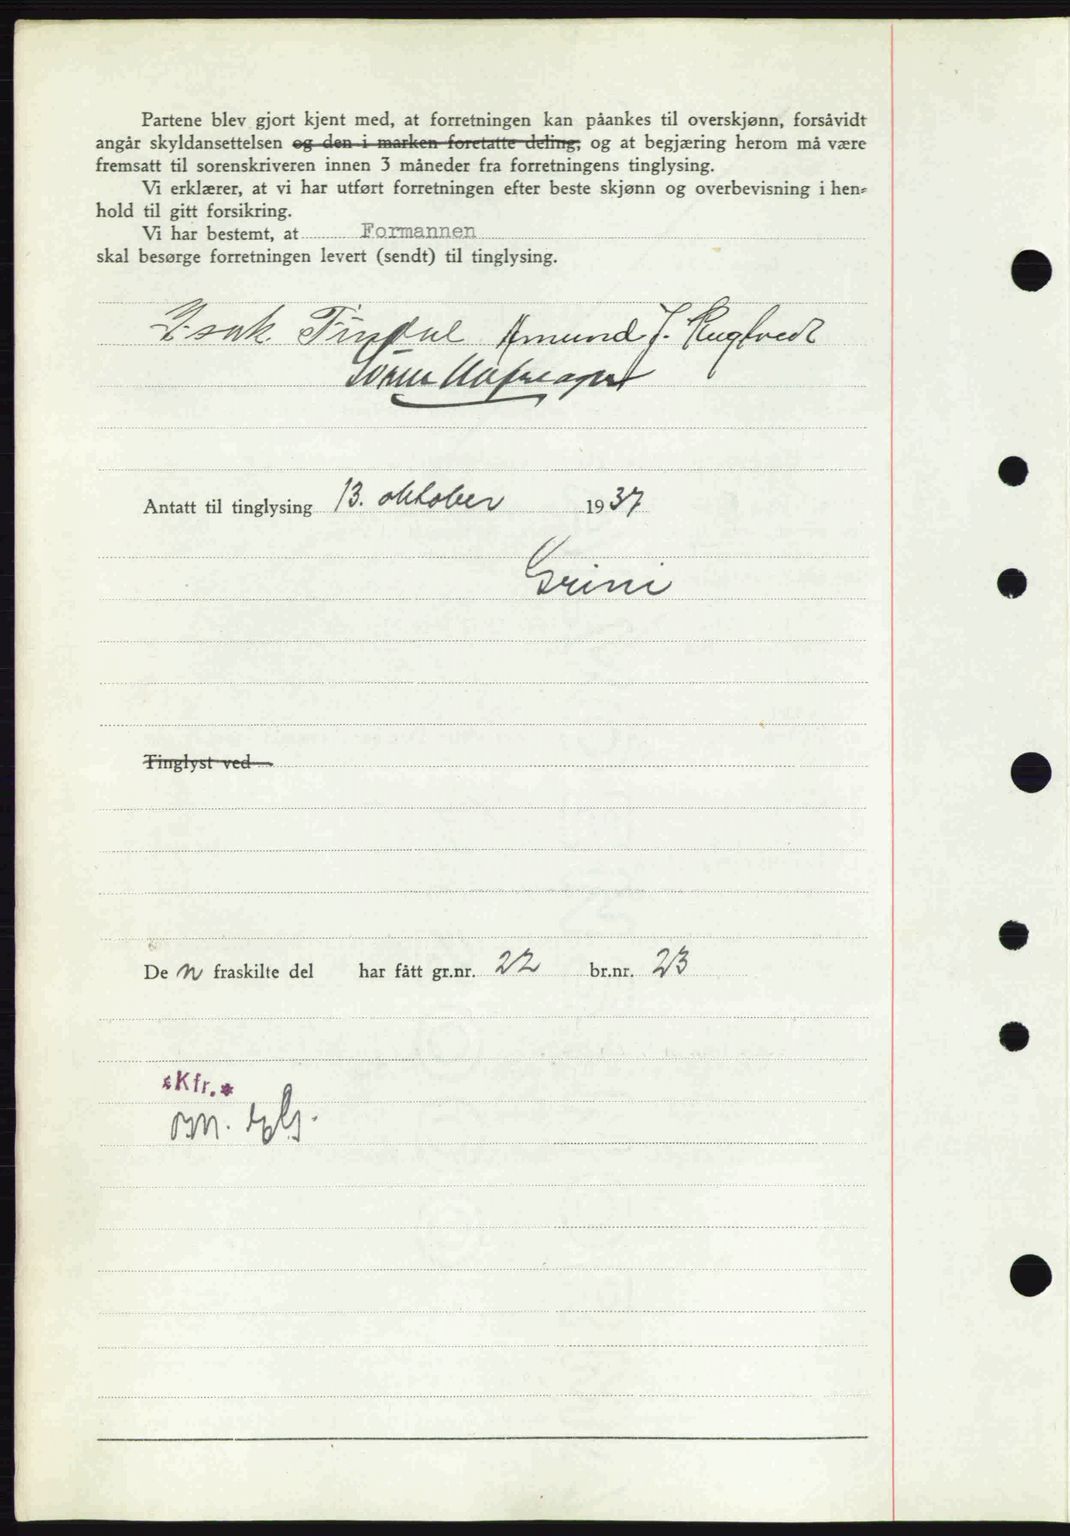 Partene blev gjort kjent med, at forretningen kan påankes til overskjønn, forsåvidt
angår skyldansettelsen og den i marken foretatte deling, og at begjæring herom må være
fremsatt til sorenskriveren innen 3 måneder fra forretningens tinglysing.
Vi erklærer, at vi har utført forretningen efter beste skjønn og overbevisning i hen-
hold til gitt forsikring.
Vi har bestemt, at Formannen
skal besørge forretningen levert (sendt) til tinglysing.
Isak Tindal Amund J.
Antatt til tinglysing 13. oktober 1937
Grini
Tinglyst ved
De n fraskilte del har fått gr.nr. 22 br.nr. 23
*Kfr.*